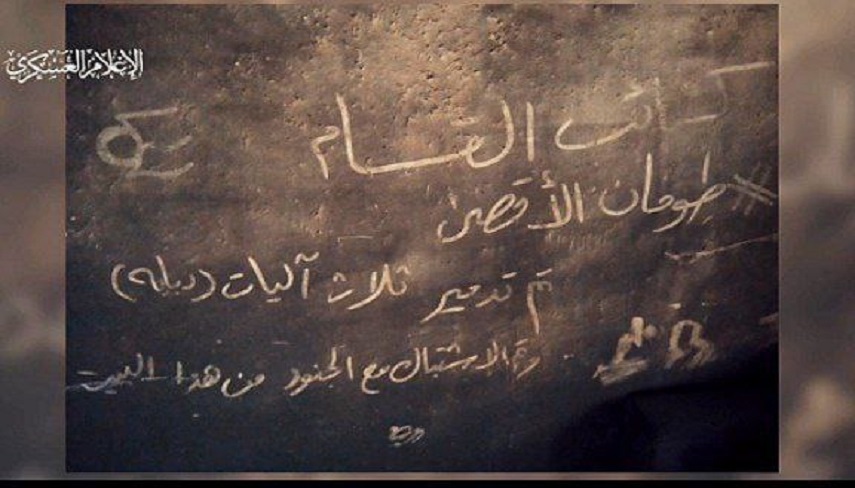 الإعلام العسكري
كتائب القسام
#طوفان الأقصى
تم تدمير ثلاث آليات (دبابه)
وتم الاشتباك مع الجنود من هذا البيت